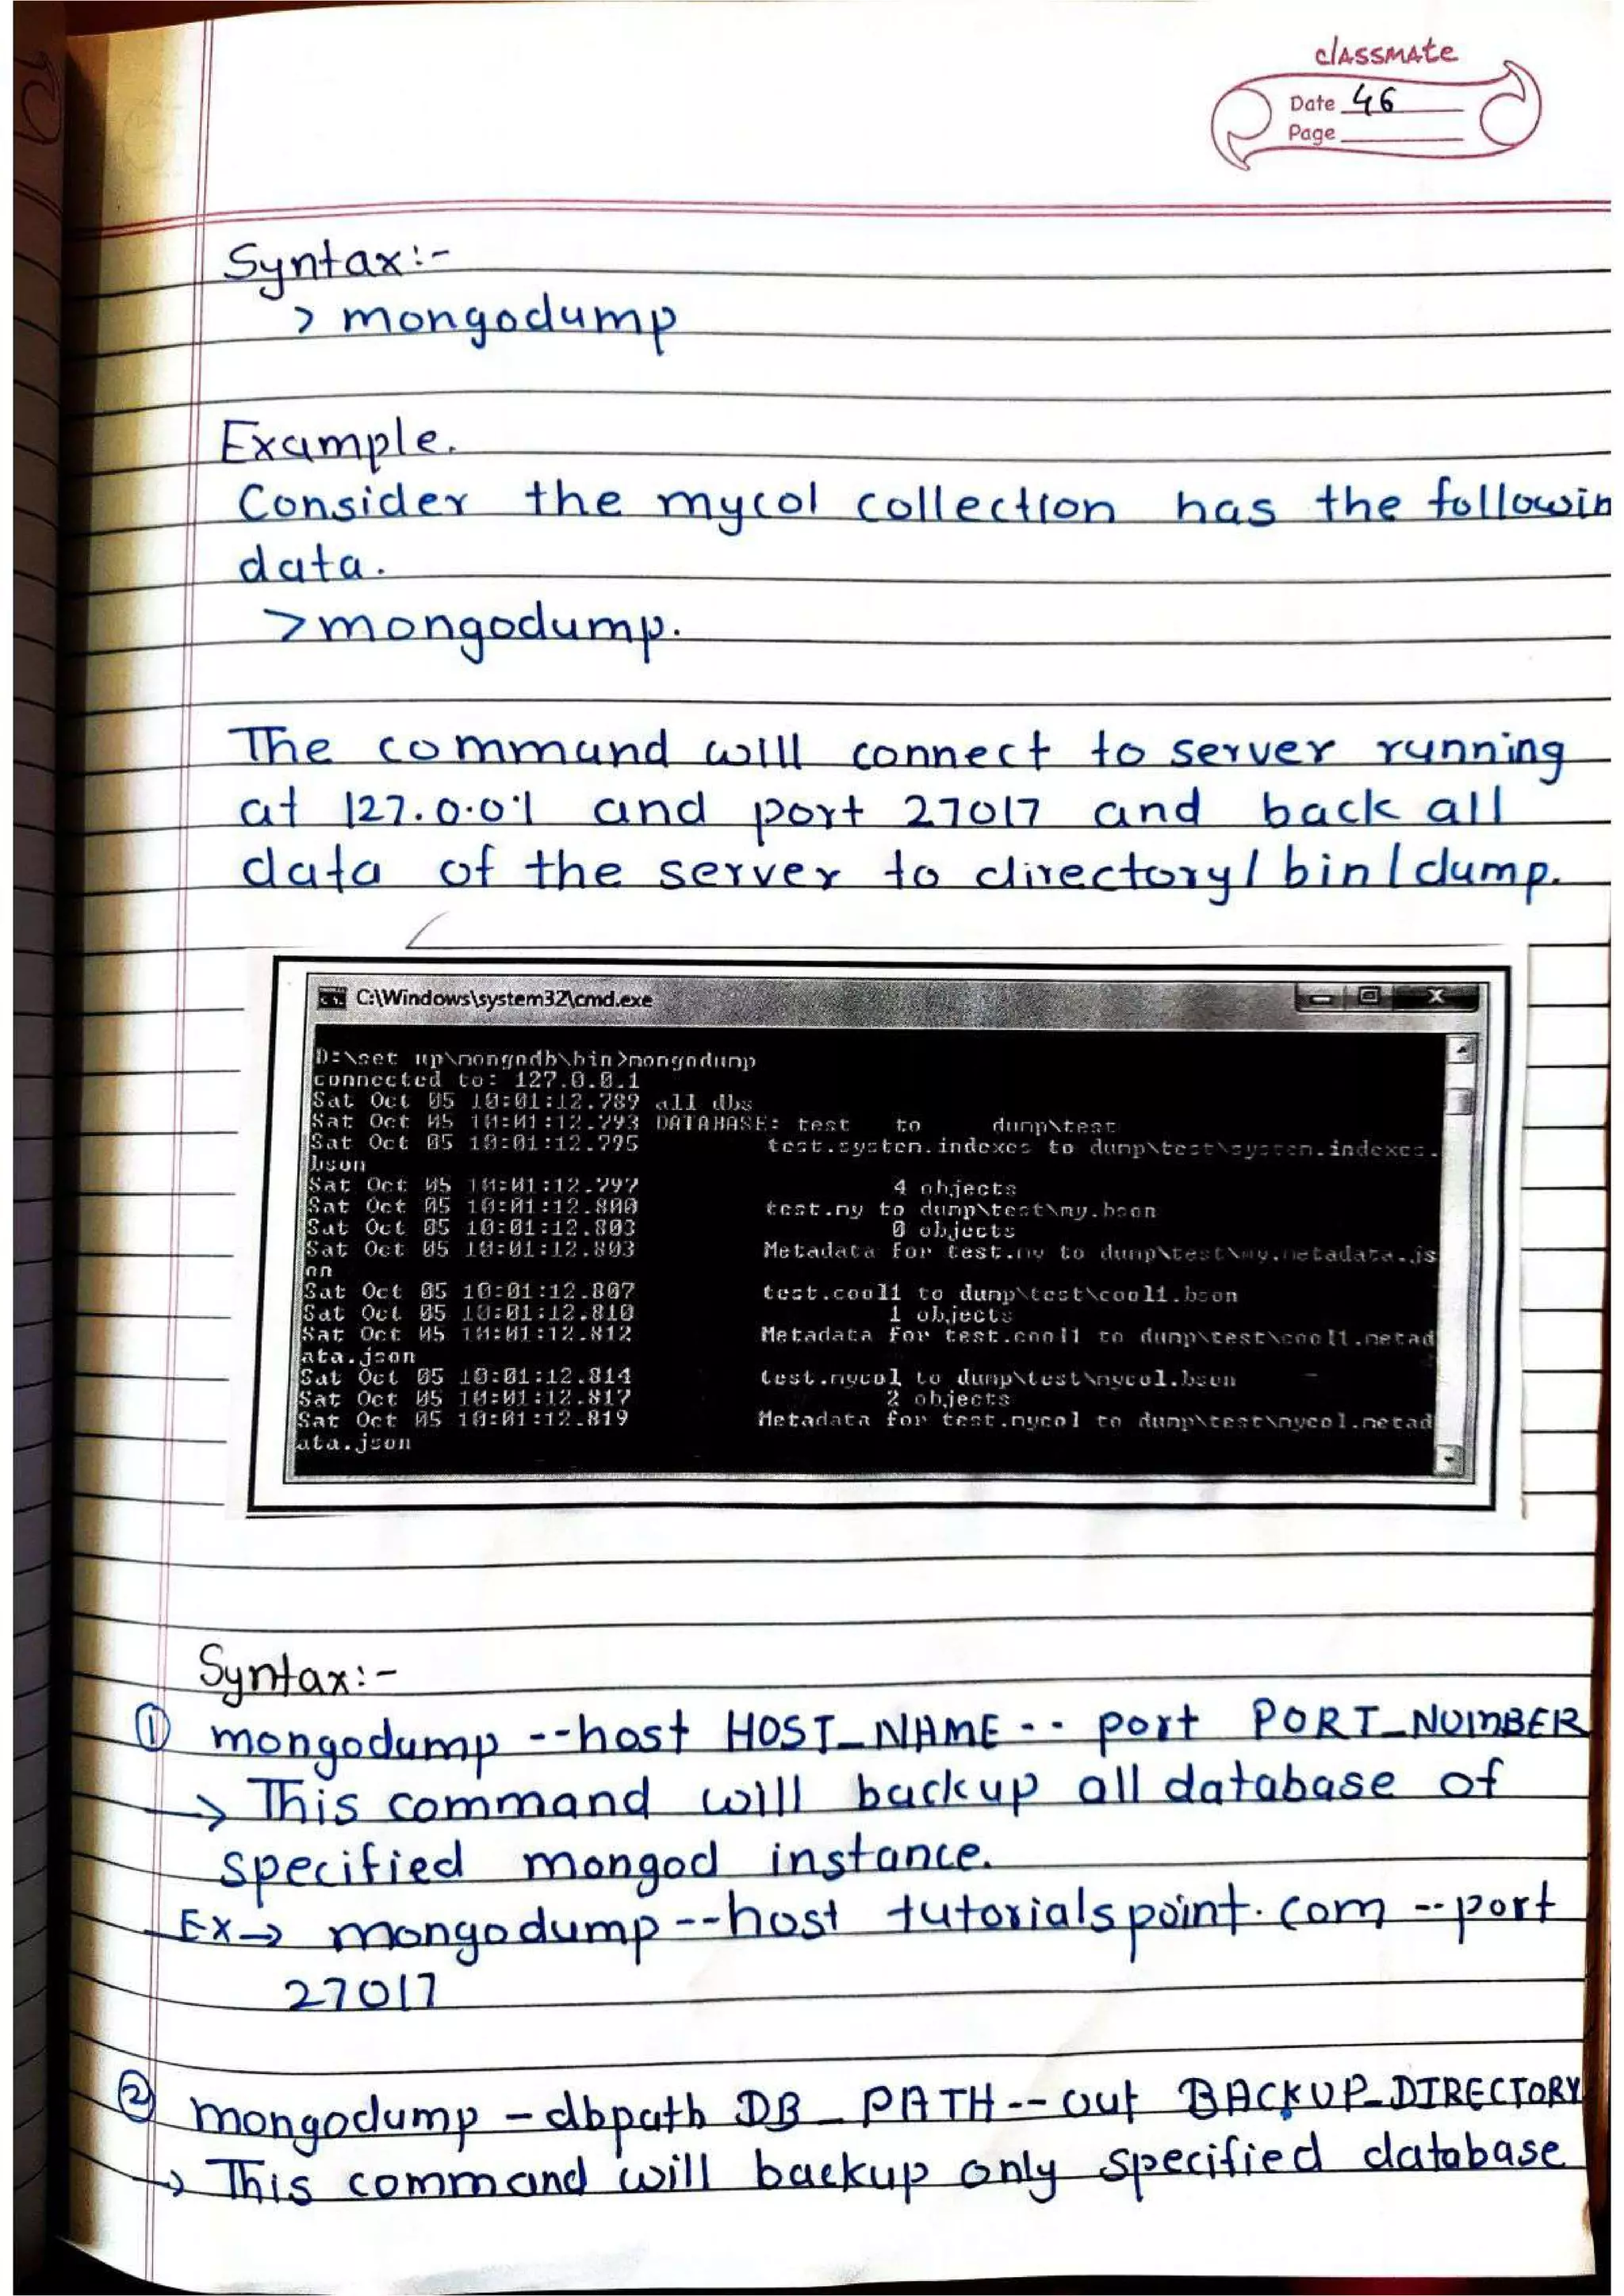 classmate
Date 46
Page
Syntax:-
> mongodump
Example.
Consider the mycol collection has the followin
data.
>mongodump.
The command will connect to server running
at 127.0.0.1 and port 27017 and back all
data of the server to directory/bin/dump.
C:\Windows\system32\cmd.exe
D:\set up\mongodb\bin>mongodump
connected to: 127.0.0.1
Sat Oct 05 10:01:12.789 all dbs
Sat Oct 05 10:01:12.793 DATABASE: test to dump\test
Sat Oct 05 10:01:12.795 test.system.indexes to dump\test\system.indexes.
bson
Sat Oct 05 10:01:12.797 4 objects
Sat Oct 05 10:01:12.800 test.my to dump\test\my.bson
Sat Oct 05 10:01:12.803 0 objects
Sat Oct 05 10:01:12.803 Metadata for test.my to dump\test\my.metadata.js
on
Sat Oct 05 10:01:12.807 test.cool1 to dump\test\cool1.bson
Sat Oct 05 10:01:12.810 1 objects
Sat Oct 05 10:01:12.812 Metadata for test.cool1 to dump\test\cool1.metad
ata.json
Sat Oct 05 10:01:12.814 test.mycol to dump\test\mycol.bson
Sat Oct 05 10:01:12.817 2 objects
Sat Oct 05 10:01:12.819 Metadata for test.mycol to dump\test\mycol.metad
ata.json
Syntax:-
① mongodump --host HOST_NAME -- port PORT_NUMBER
→ This command will backup all database of
specified mongod instance.
Ex→ mongodump --host tutorialspoint.com --port
27017
② mongodump -dbpath DB_PATH -- out BACKUP_DIRECTORY
→ This command will backup only specified database